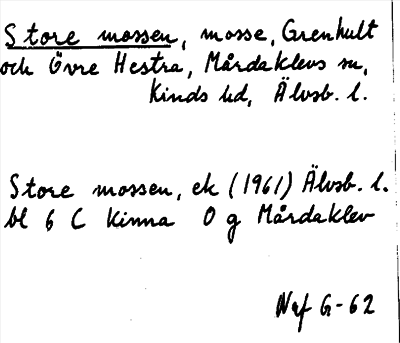 Store mossen, mosse, Grenhult
och Övre Hestra, Mårdaklevs sn,
Kinds hd, Älvsb. l.
Store mossen, ek (1961) Älvsb. l.
bl 6 C Kinna 0 g Mårdaklev
Naf G-62